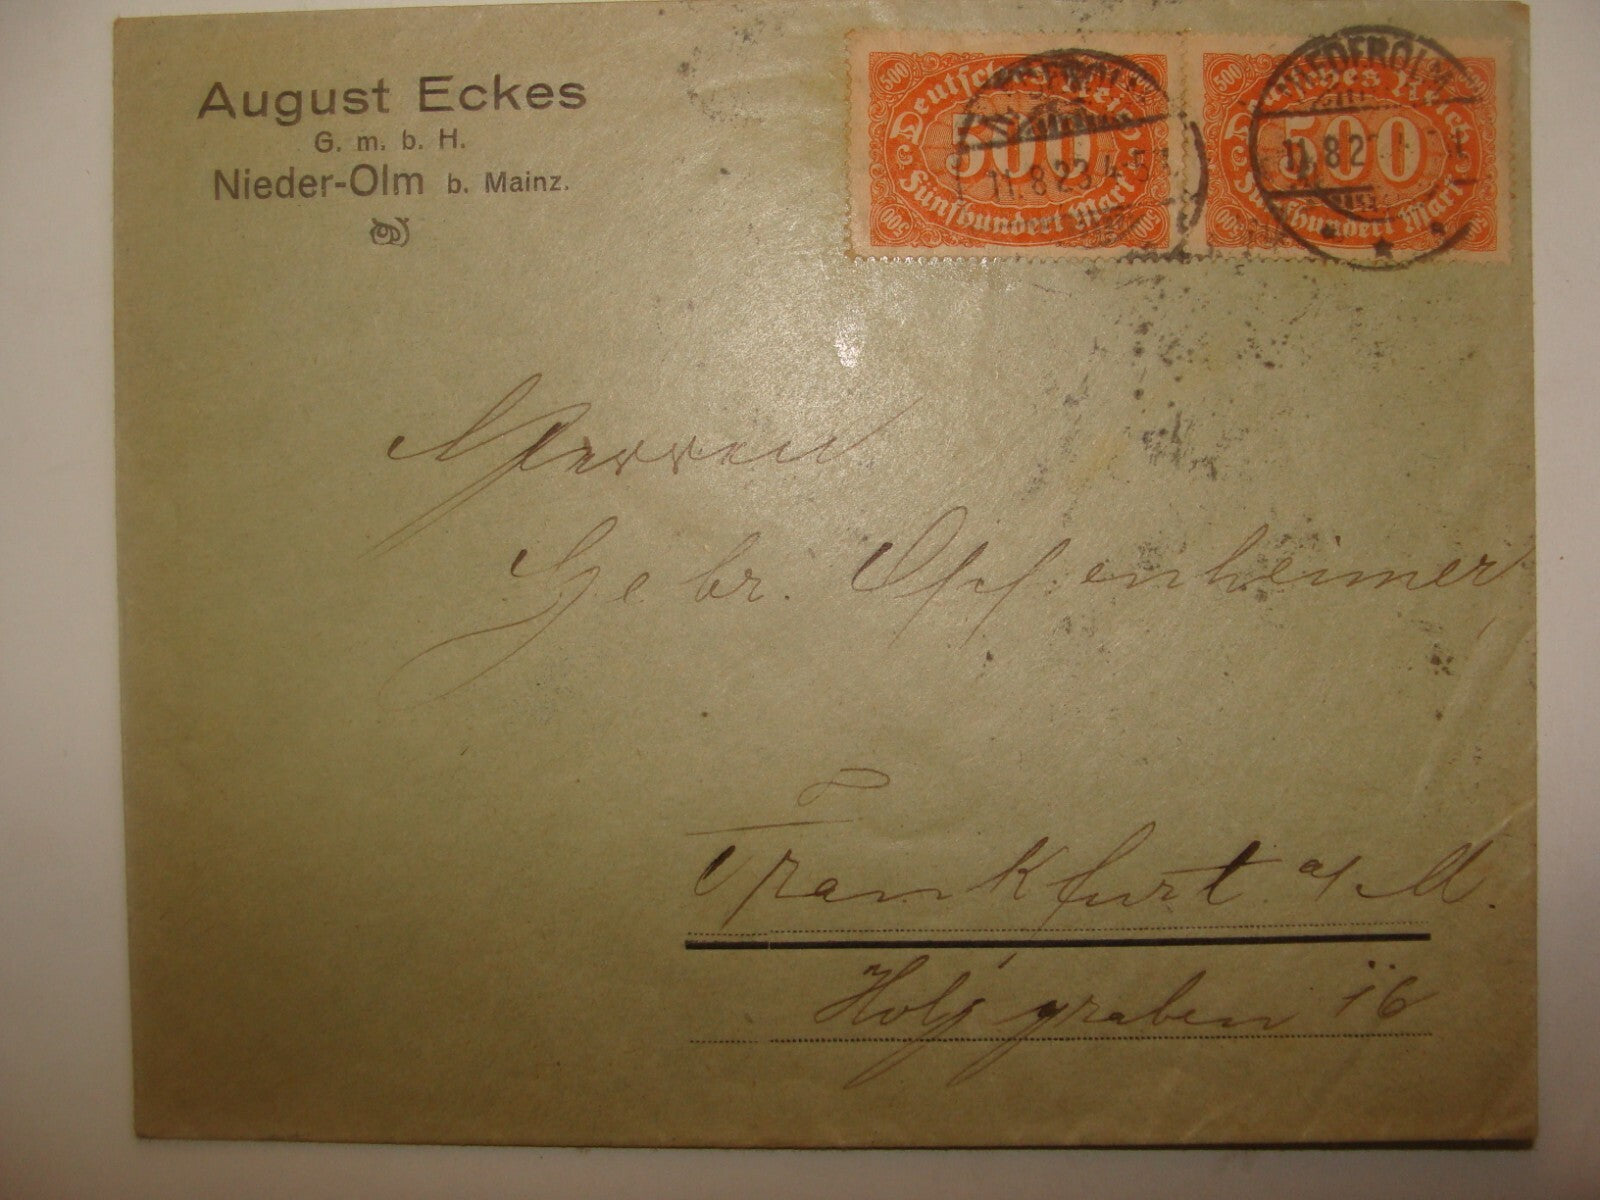 August Eckes
G. m. b. H.
Nieder-Olm b. Mainz.
500 Deutsches Reich 500
500
Fünfhundert Mark
500 500
NIEDEROLM
11.8.23 4-5
500 Deutsches Reich 500
500
Fünfhundert Mark
500 500
NIEDEROLM
11.8.2
Herren
Gebr. Oppenheimer
Frankfurt a/M.
Holzgraben 16